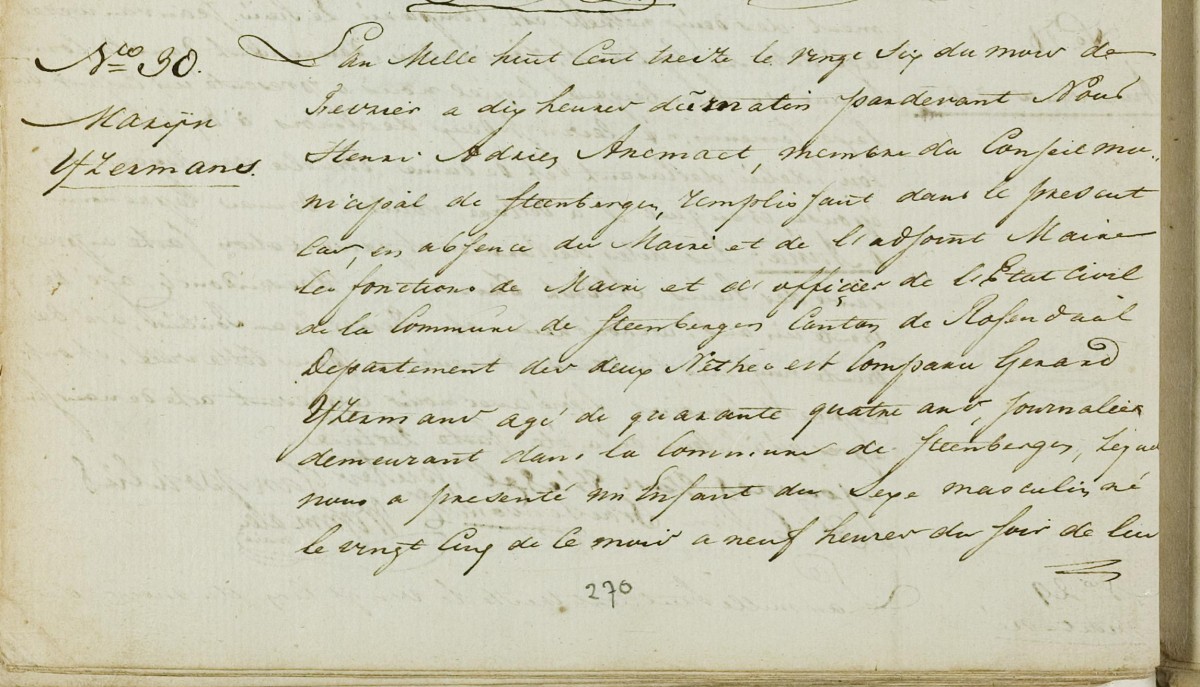 Nco 30.
Marijn
Yzermans.
L'an Mille huit Cent treize le vingt Six du mois de
Fevrier a dix heures du matin pardevant Nous
Henri Adrien Anemaet, membre du Conseil mu-
nicipal de Steenbergen, remplissant dans le present
Cas, en absence du Maire et de l'adjoint Maire
les fonctions de Maire et d'officier de l'Etat Civil
de la Commune de Steenbergen Canton de Rosendaal
Departement des deux Nethes est Comparu Gerard
Yzermans agé de quarante quatre ans, journalier
demeurant dans la Commune de Steenbergen, lequel
nous a presenté un Enfant du Sexe masculin né
le vingt Cinq de Ce mois a neuf heures du soir de lui
270